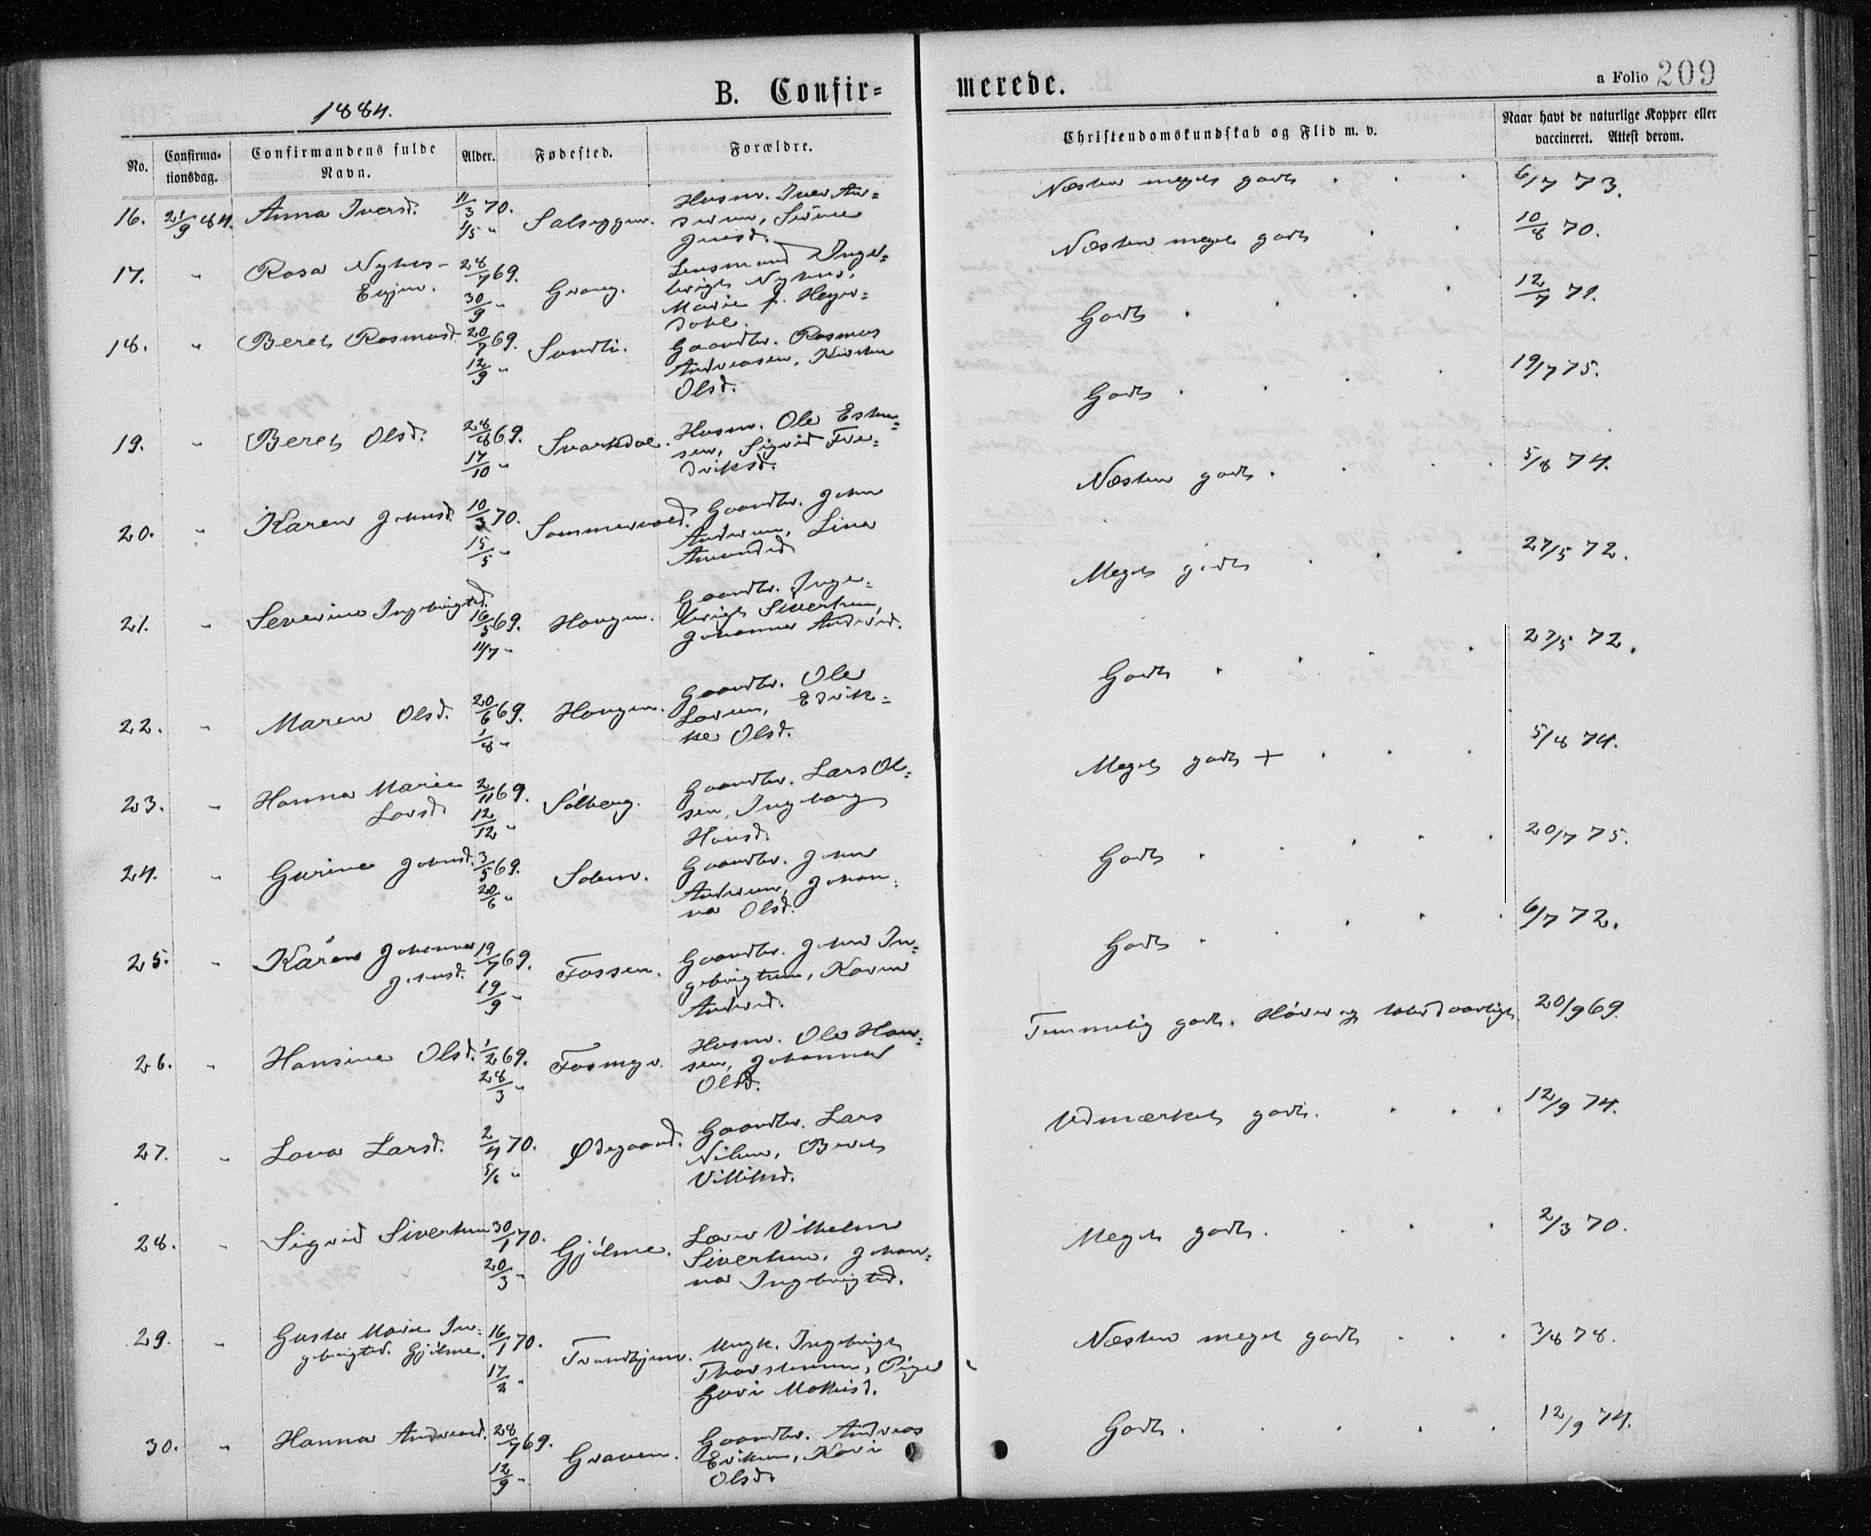 1884.
B. Confir=
merede.
a Folio 209
No.
Confirma-
tionsdag.
Confirmandens fulde
Navn.
Alder.
Fødested.
Forældre.
Christendomskundskab og Flid m. v.
Naar havt de naturlige Kopper eller
vaccineret. Attest derom.
16. 21/9 84. Anna Iversd. 11/3 70. 1/5 " Salseggen. Husm. Iver An=
dersen, Sirine
Jensd.
Næsten meget godt 6/7 73.
17. " Rosa Nyhus- 28/7 69. 30/9 " Grang. Lensmand Inge=
brigt Nyhus,
Marie f. Heyer=
dahl.
Næsten meget godt 10/8 70.
18. " Beret Rasmusd. 20/7 69. 12/9 " Sandli. Gaardbr. Rasmus
Andreasen, Kirsten
Olsd.
Godt 12/7 71.
19. " Beret Olsd. 28/8 69. 17/10 " Svartdal. Husm. Ole Esten=
sen, Sigrid Fre=
driksd.
Godt 19/7 75.
20. " Karen Johnsd. 10/3 70. 15/5 " Sommervold. Gaardbr. John
Andersen, Lina
Amundsd.
Næsten godt 5/8 74.
21. " Severine Ingebrigtsd. 16/5 69. 11/7 " Haugen. Gaardbr. Inge=
brigt Sivertsen,
Johanna Andersd.
Meget godt 27/5 72.
22. " Maren Olsd. 20/6 69. 1/8 " Haugen. Gaardbr. Ole
Larsen, Edrik=
ke Olsd.
Godt 27/5 72.
23. " Hanna Marie
Larsd. 2/11 69. 12/12 " Solberg. Gaardbr. Lars Ol=
sen, Ingeborg
Hansd.
Meget godt + 5/8 74.
24. " Gurine Johnsd. 3/5 69. 20/6 " Solem. Gaardbr. John
Andersen, Johan=
na Olsd.
Godt 20/7 75.
25. " Karen Johanna
Johnsd. 19/7 69. 19/9 " Fossen. Gaardbr. John In=
gebrigtsen, Karen
Andersd.
Godt 6/7 72.
26. " Hansine Olsd. 1/2 69. 28/3 " Fosmyr. Husm. Ole Han=
sen, Johanna
Olsd.
Temmelig godt. Hører og taler daarligt. 20/9 69.
27. " Lava Larsd. 2/4 70. 5/6 " Ødegaard. Gaardbr. Lars
Nilsen, Beret
Villiksd.
Udmærket godt. 12/9 74.
28. " Sigrid Sivertsen 30/1 70. 20/3 " Gjølme. Lærer Vilhelm
Sivertsen, Johan=
na Ingebrigtsd.
Meget godt. 2/3 70.
29. " Gusta Marie In=
gebrigtsd. Gjølme. 16/1 70. 17/2 " Trondhjem. Ungk. Ingebrigt
Thorstensen, Pige
Guri Mathisd.
Næsten meget godt 3/8 78.
30. " Hanna Andreasd. 28/7 69. 12/9 " Graven. Gaardbr. Andreas
Eriksen, Kari
Olsd.
Godt. 12/9 74.